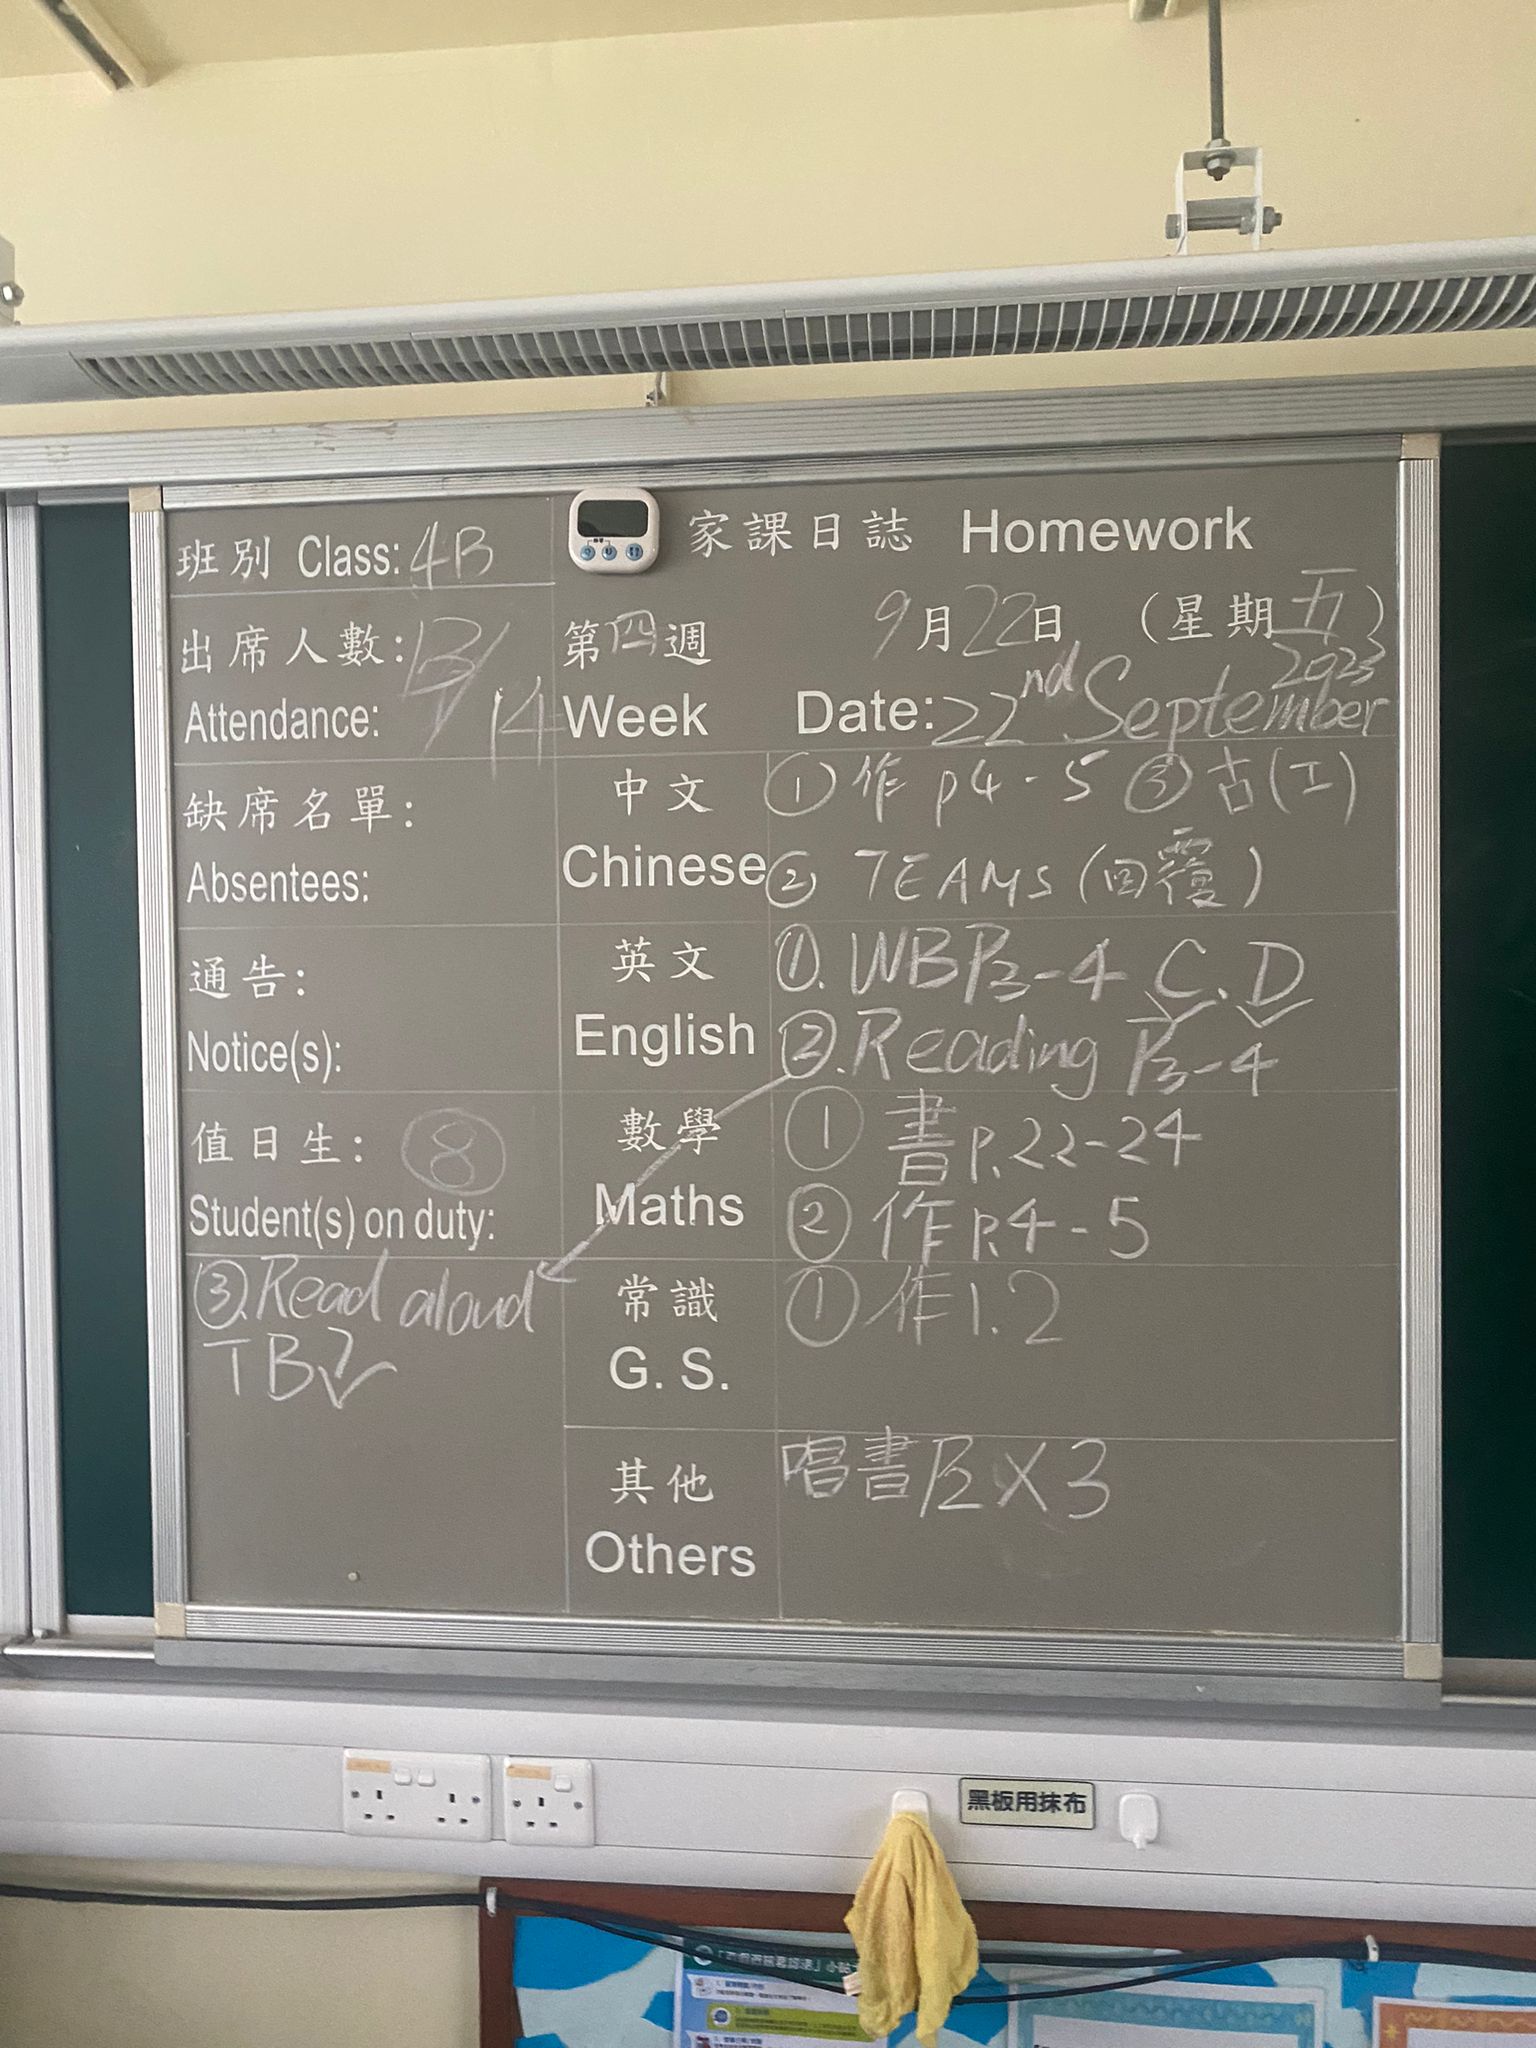 班別 Class: 4B
出席人數: 13/14
Attendance:
缺席名單:
Absentees:
通告:
Notice(s):
值日生: ⑧
Student(s) on duty:
③. Read aloud
TB
家課日誌 Homework
第四週 9月22日 (星期五)
Week Date: 22nd September 2023
中文 ① 作 p4-5 ③ 古(工)
Chinese ② TEAMS (回覆)
英文 ①. WB P3-4 C. D
English ②. Reading P3-4
數學 ① 書p.22-24
Maths ② 作p.4-5
常識 ① 作1.2
G. S.
其他 唱書P2 X 3
Others
黑板用抹布